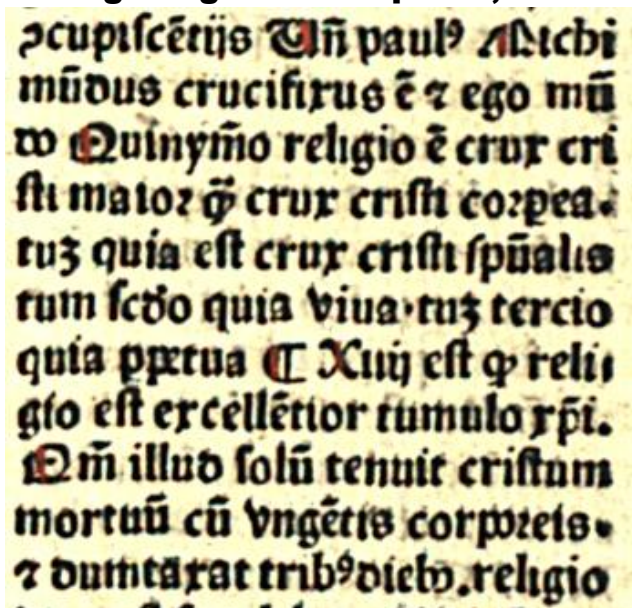 ↄcupiſcētijs Uñ paulꝰ Michi
mūdus crucifixus ē ⁊ ego mū
do Quinymo̅ religio ē crux cri
ſti maioꝛ q̄ꝫ crux criſti coꝛpea⸗
tuꝫ quia eſt crux criſti ſpūalis
tum ſcd̄o quia viua·tuꝫ tercio
quia ꝑpetua ¶ Xiiij eſt ꝙ reli⸗
gio eſt excellētior tumulo xp̄i.
Qm̄ illud ſolū tenuit criſtum
mortuū cū vngētis corpoꝛeis·
⁊ dumtaxat tribꝰ diebꝫ.religio